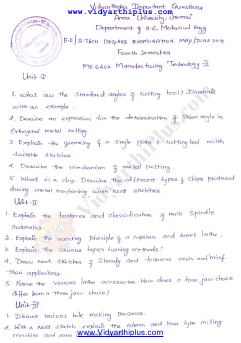 www.Vidyarthiplus.com
Vidyarthiplus Important Questions
Anna University, Chennai
Department of B.E, Mechanical Engg
B.E / B.Tech DEGREE EXAMINATION MAY/JUNE
Fourth Semester
ME 6402 Manufacturing Technology-II
Unit-I
1. What are the standard angles of cutting tool? Illustrate
with an example.
2. Derive an expression for the determination of Shear angle in
Orthogonal metal cutting.
3. Explain the geometry of a single point cutting tool with
suitable sketches.
4. Describe the mechanism of metal cutting.
5. What is a chip. Describe the different types of chips produced
during metal machining with neat sketches.
Unit-II
1. Explain the features and classification of multi Spindle
automatics.
2. Explain the working principle of a capstan and turret lathe.
3. Explain the various taper turning methods?
4. Draw neat sketches of Steady and rests and brief
their applications.
5 Name the various lathe accessories. How does a four jaw chuck
differ from a three jaw chuck?
Unit-III
1. Discuss various hole making processes.
2. With a neat Sketch explain the column and knee type milling
machine and
www.Vidyarthiplus.com